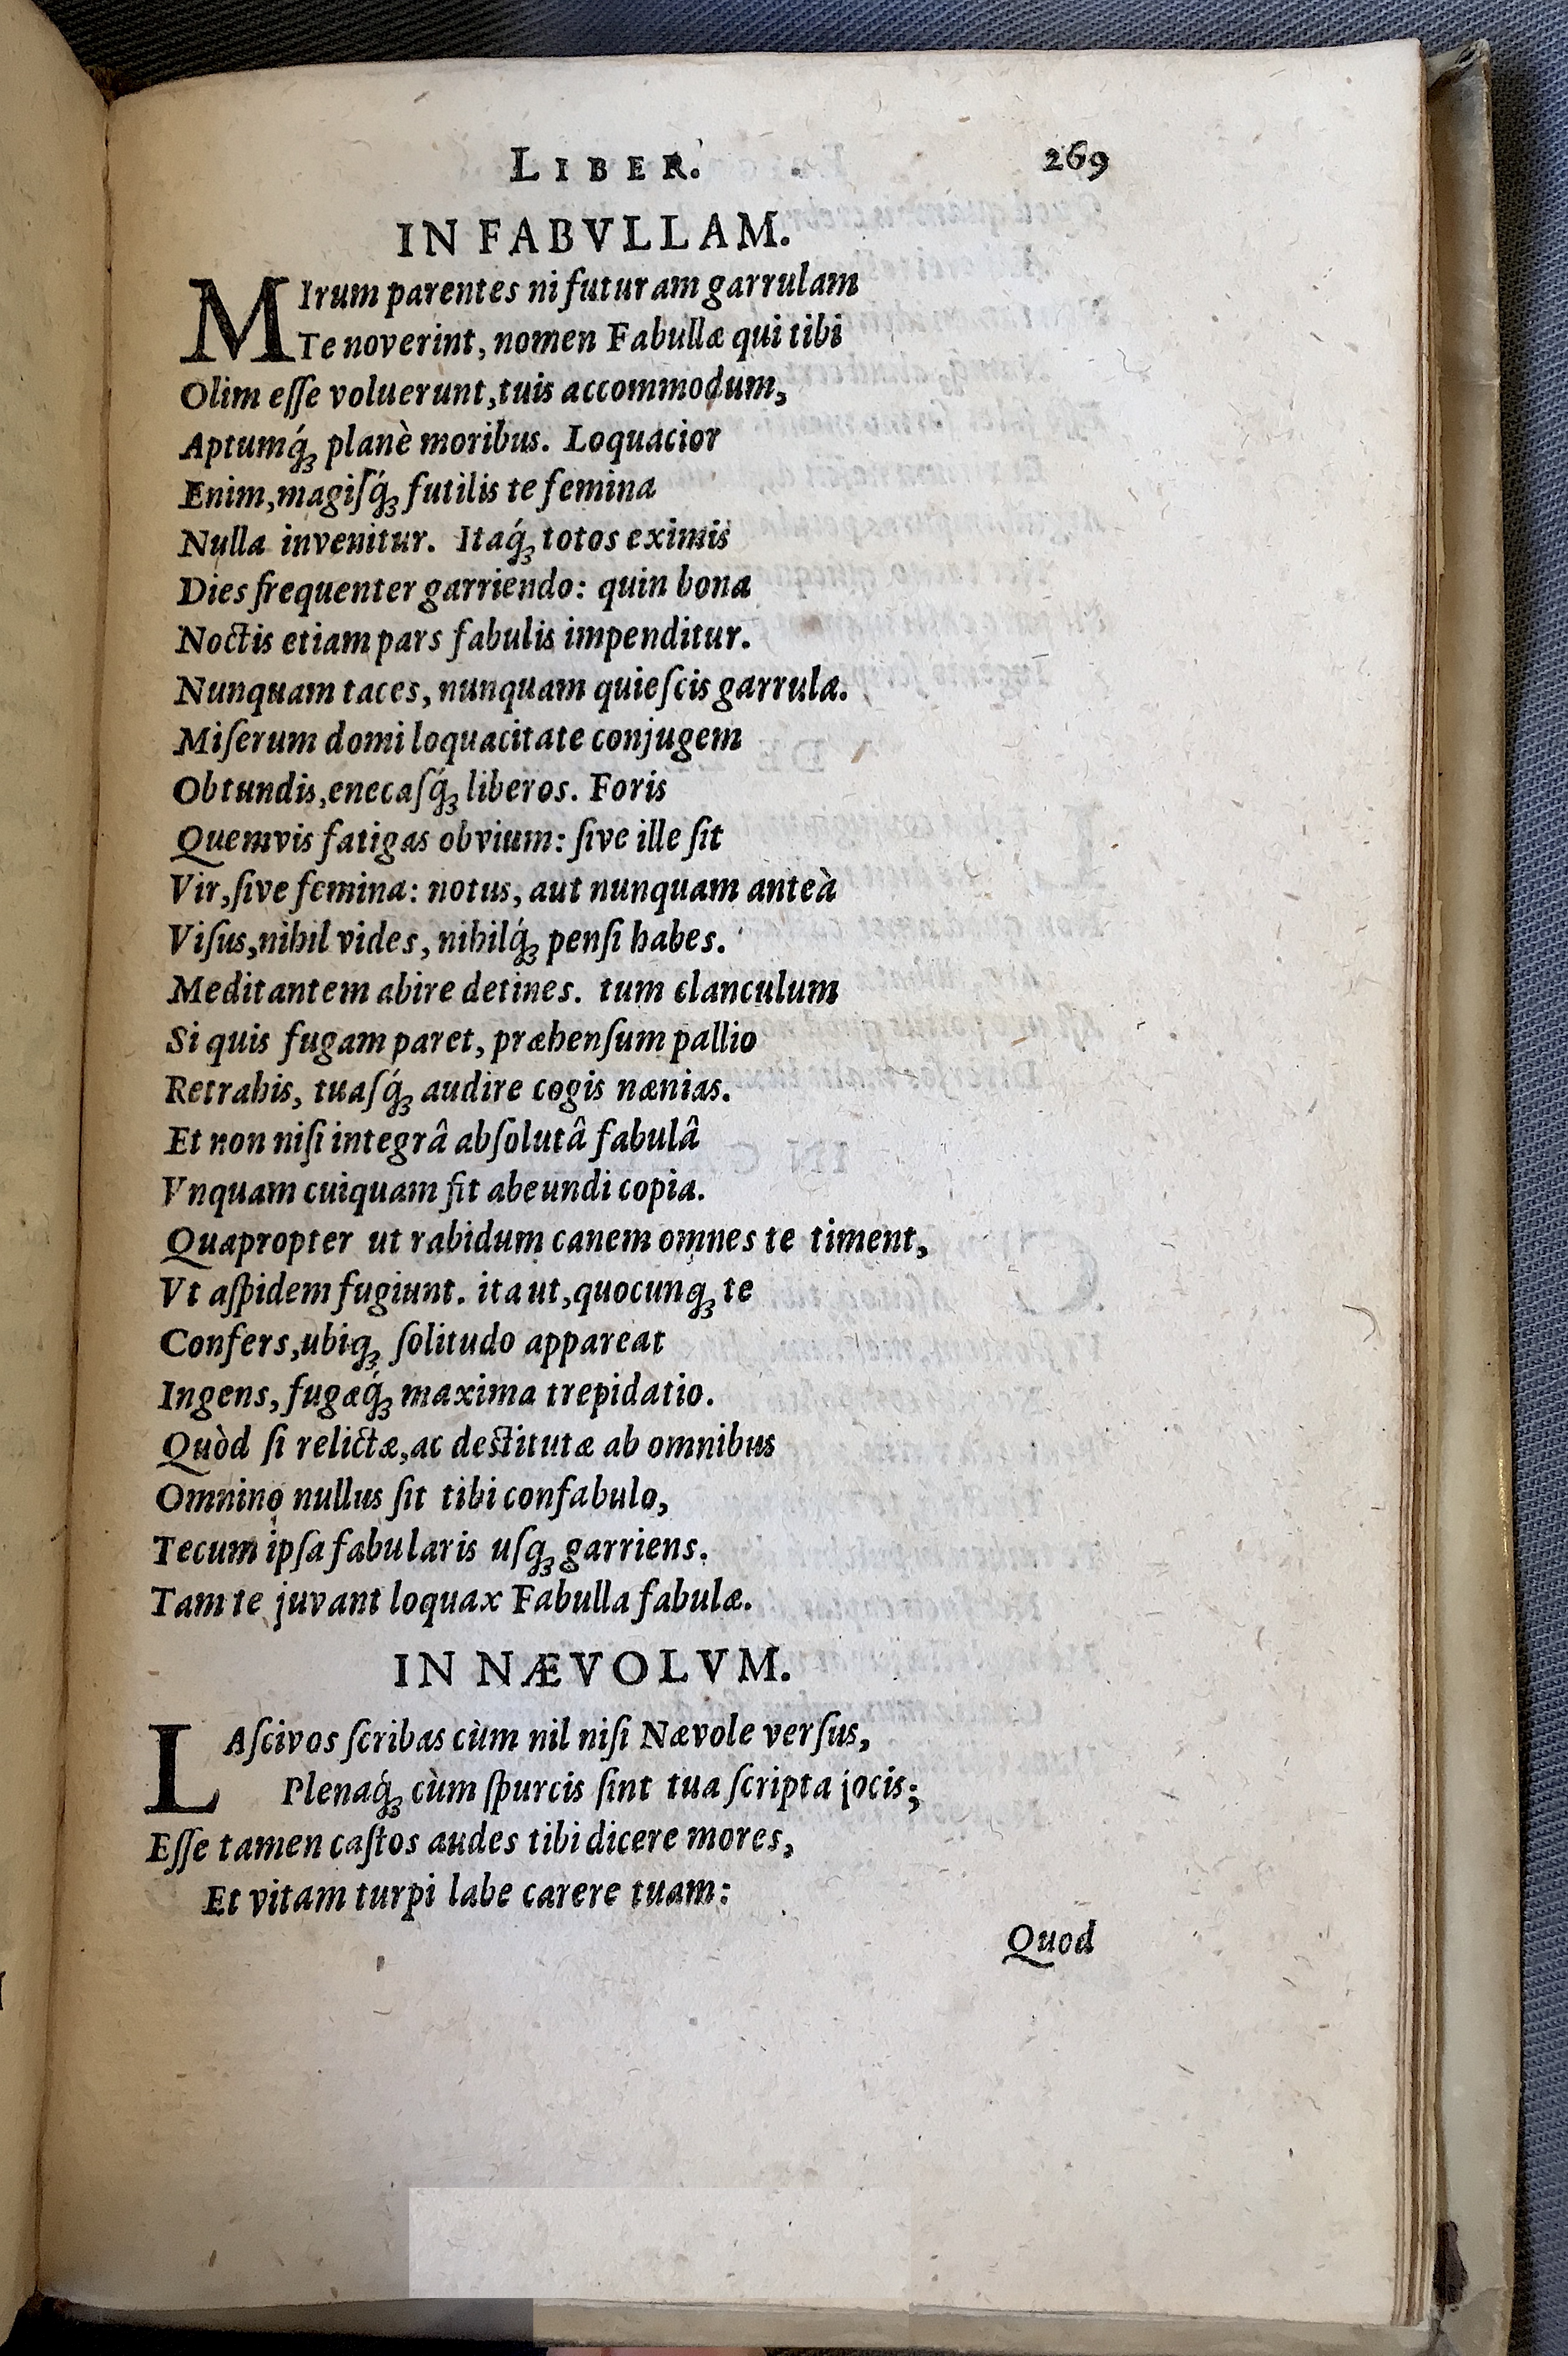 LIBER. 269
IN FABVLLAM.
MIrum parentes ni futuram garrulam
Te noverint, nomen Fabullæ qui tibi
Olim eſſe voluerunt, tuis accommodum,
Aptumq́ꝫ planè moribus. Loquacior
Enim, magiſq́ꝫ futilis te femina
Nulla invenitur. Itaq́ꝫ totos eximis
Dies frequenter garriendo: quin bona
Noctis etiam pars fabulis impenditur.
Nunquam taces, nunquam quieſcis garrula.
Miſerum domi loquacitate conjugem
Obtundis, enecaſq́ꝫ liberos. Foris
Quemvis fatigas obvium: ſive ille ſit
Vir, ſive femina: notus, aut nunquam anteà
Viſus, nihil vides, nihilq́ꝫ penſi habes.
Meditantem abire detines. tum clanculum
Si quis fugam paret, præhenſum pallio
Retrahis, tuaſq́ꝫ audire cogis nænias.
Et non niſi integrâ abſolutâ fabulâ
Vnquam cuiquam fit abeundi copia.
Quapropter ut rabidum canem omnes te timent,
Vt aſpidem fugiunt. ita ut, quocunqꝫ te
Confers, ubiqꝫ ſolitudo appareat
Ingens, fugæq́ꝫ maxima trepidatio.
Quòd ſi relictæ, ac deſtitutæ ab omnibus
Omnino nullus ſit tibi confabulo,
Tecum ipſa fabularis uſqꝫ garriens.
Tam te juvant loquax Fabulla fabulæ.
IN NÆVOLVM.
LAſcivos ſcribas cùm nil niſi Nævole verſus,
Plenaq́ꝫ cùm ſpurcis ſint tua ſcripta jocis;
Eſſe tamen caſtos audes tibi dicere mores,
Et vitam turpi labe carere tuam:
Quod